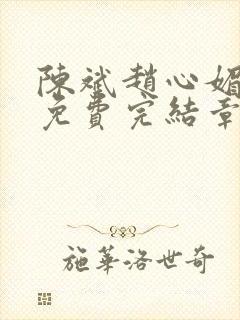 陳斌趙心媚
免費完結章
施華洛世奇